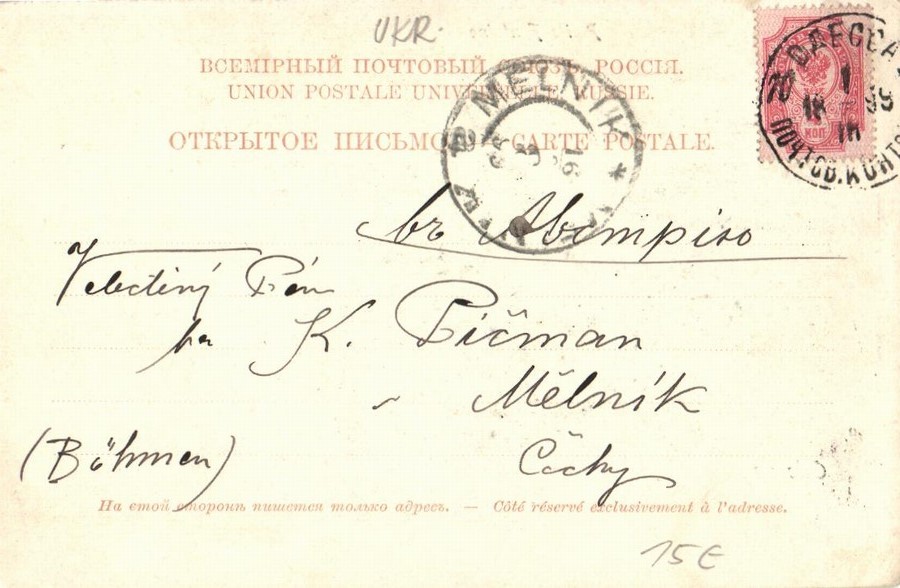 UKR.
ВСЕМІРНЫЙ ПОЧТОВЫЙ СОЮЗЪ. РОССІЯ.
UNION POSTALE UNIVERSELLE. RUSSIE.
ОТКРЫТОЕ ПИСЬМО. — CARTE POSTALE.
MĚLNÍK
ОДЕССА
1
18 99
ПОЧТОВ. КОНТ
КОП
Velectěný Pán
K. Pičman
Mělník
(Böhmen)
Čechy
На етой сторонѣ пишется только адресъ. — Côté réservé exclusivement à l'adresse.
15€